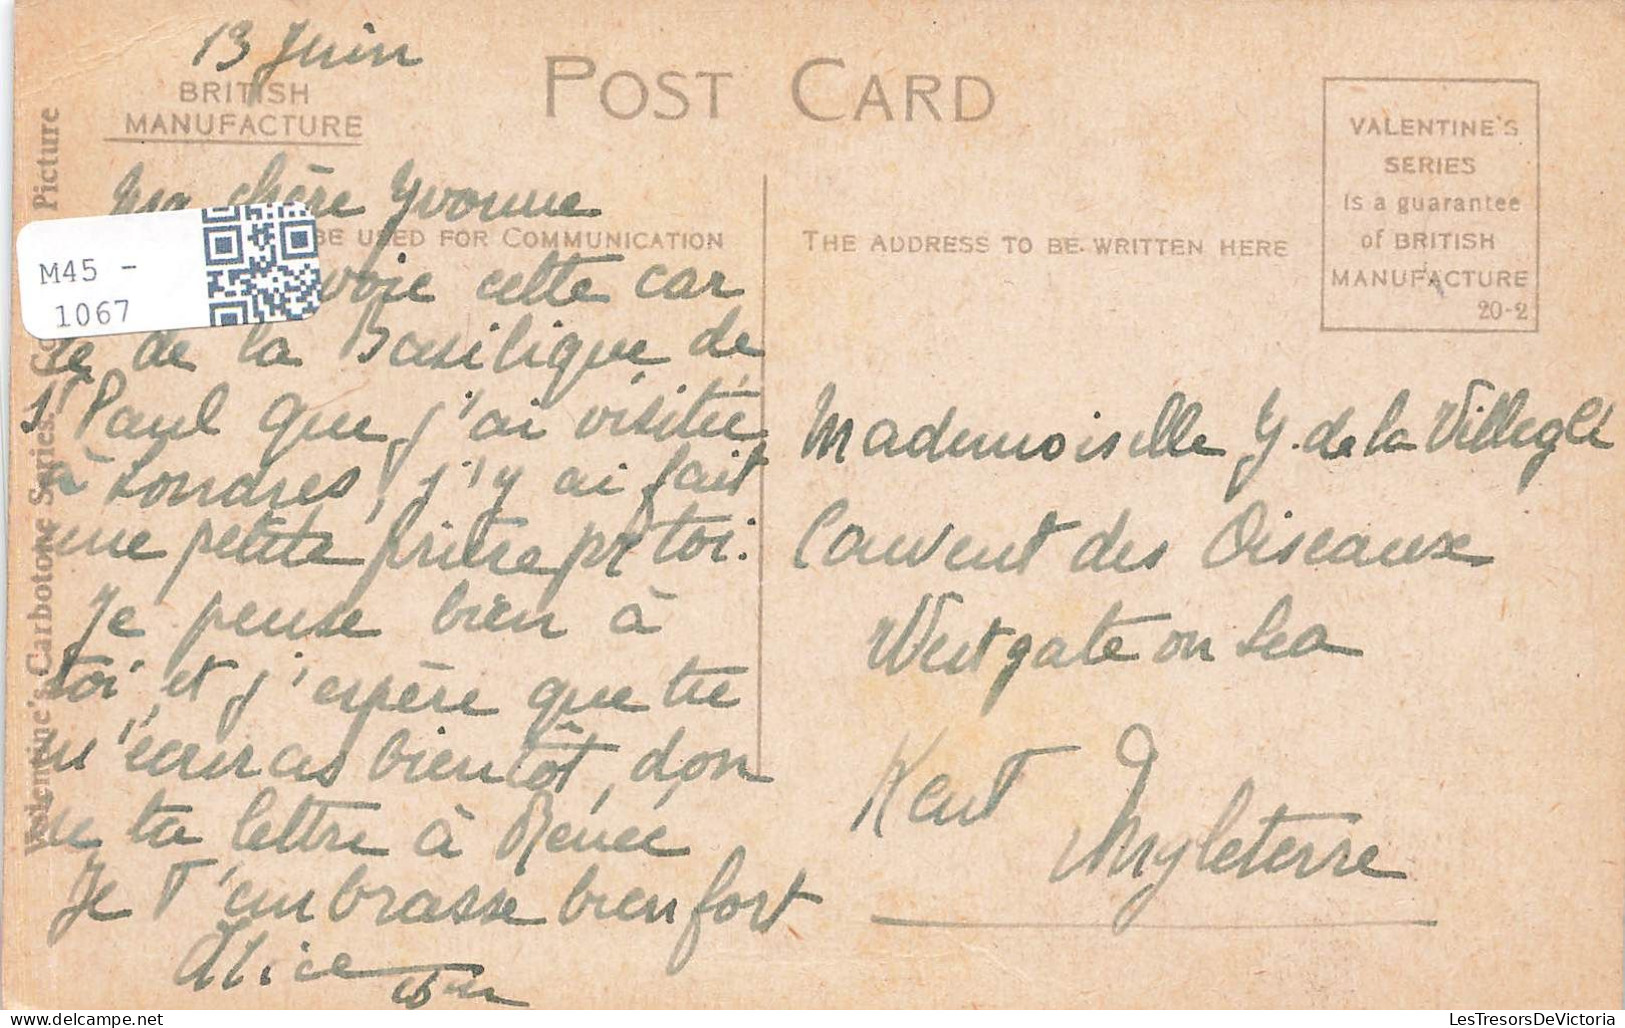 13 Juin
BRITISH
MANUFACTURE
POST CARD
VALENTINE'S
SERIES
is a guarantee
of BRITISH
MANUFACTURE
20-2
Valentine's Carbotone Series. Picture
BE USED FOR COMMUNICATION
THE ADDRESS TO BE WRITTEN HERE
M45 -
1067
Ma chère Yvonne
voie cette car
te de la Basilique de
St Paul que j'ai visitée
à Londres, j'y ai fait
une petite prière pr toi.
Je pense bien à
toi et j'espère que tu
m'écriras bientôt, don
ne ta lettre à Renée
Je t'embrasse bien fort
Alice
Mademoiselle Y. de la Villeglé
Couvent des Oiseaux
Westgate on Sea
Kent
Angleterre
LesTresorsDeVictoria